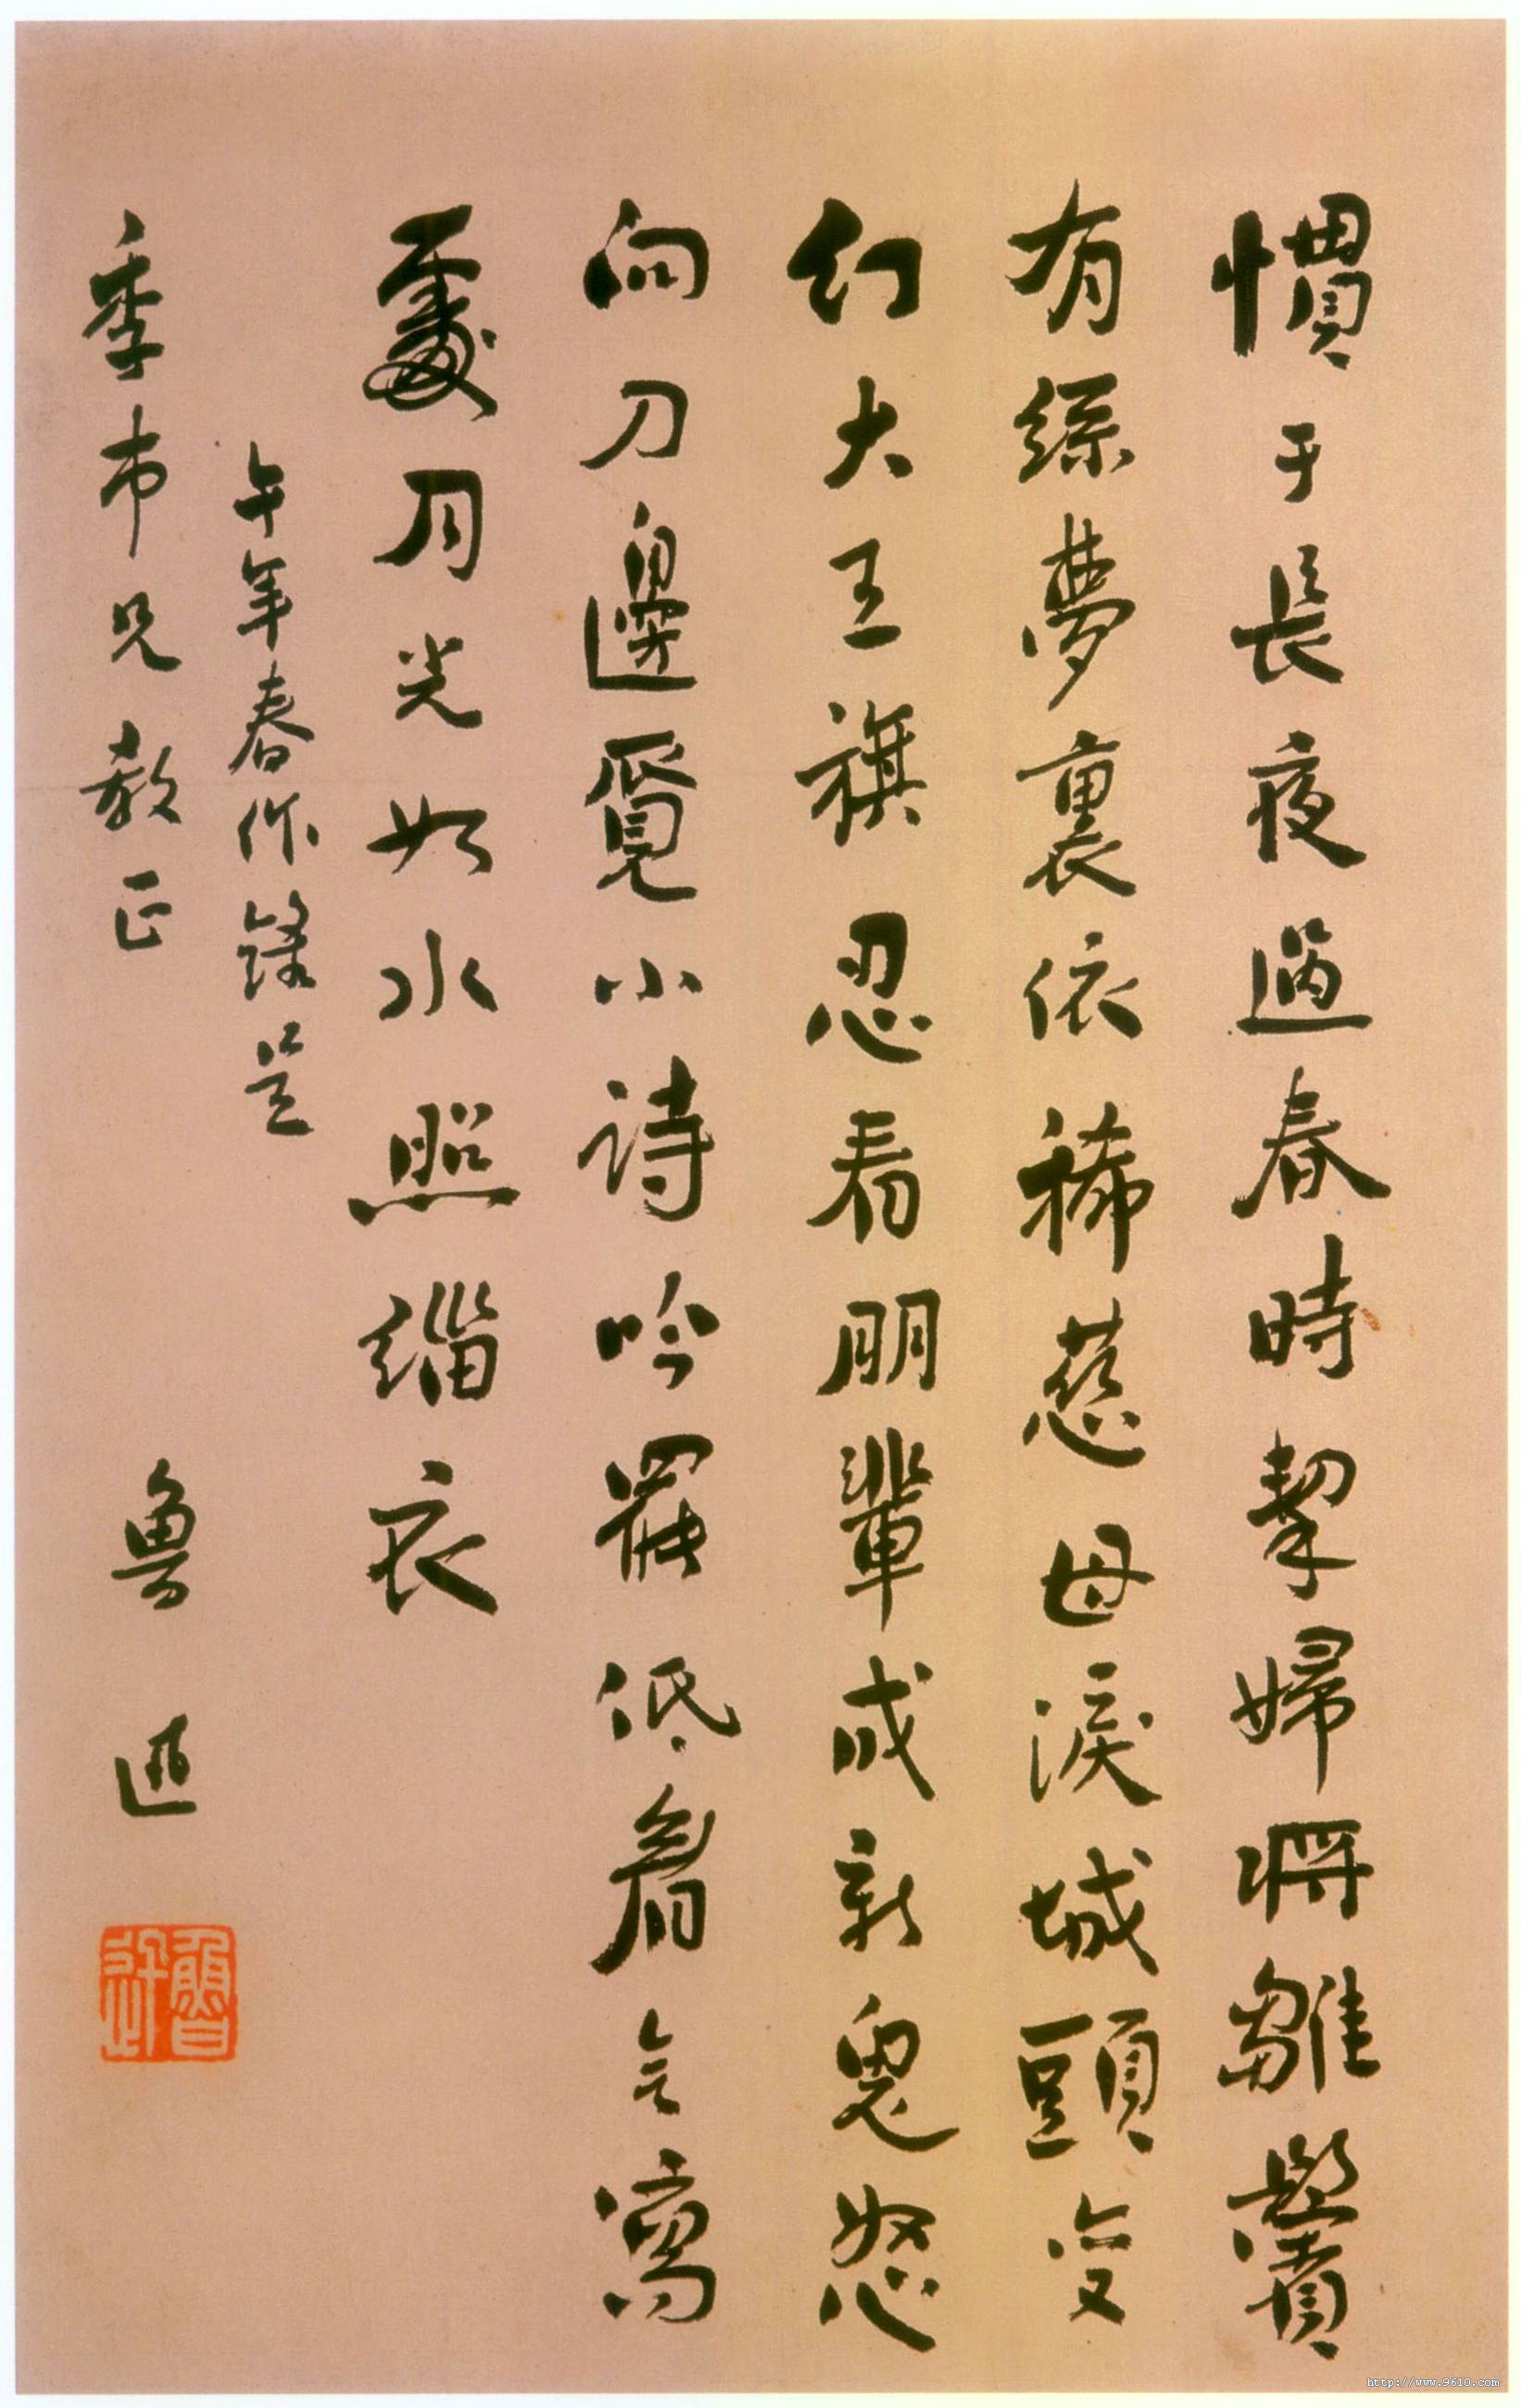 慣于長夜過春時挈婦將雛鬢
有絲夢裏依稀慈母淚城頭变
幻大王旗忍看朋輩成新鬼怒
向刀邊覓小詩吟罷低眉無寫
處月光如水照緇衣
午年春作錄呈
季市兄教正
魯迅
魯迅
http://www.9610.com